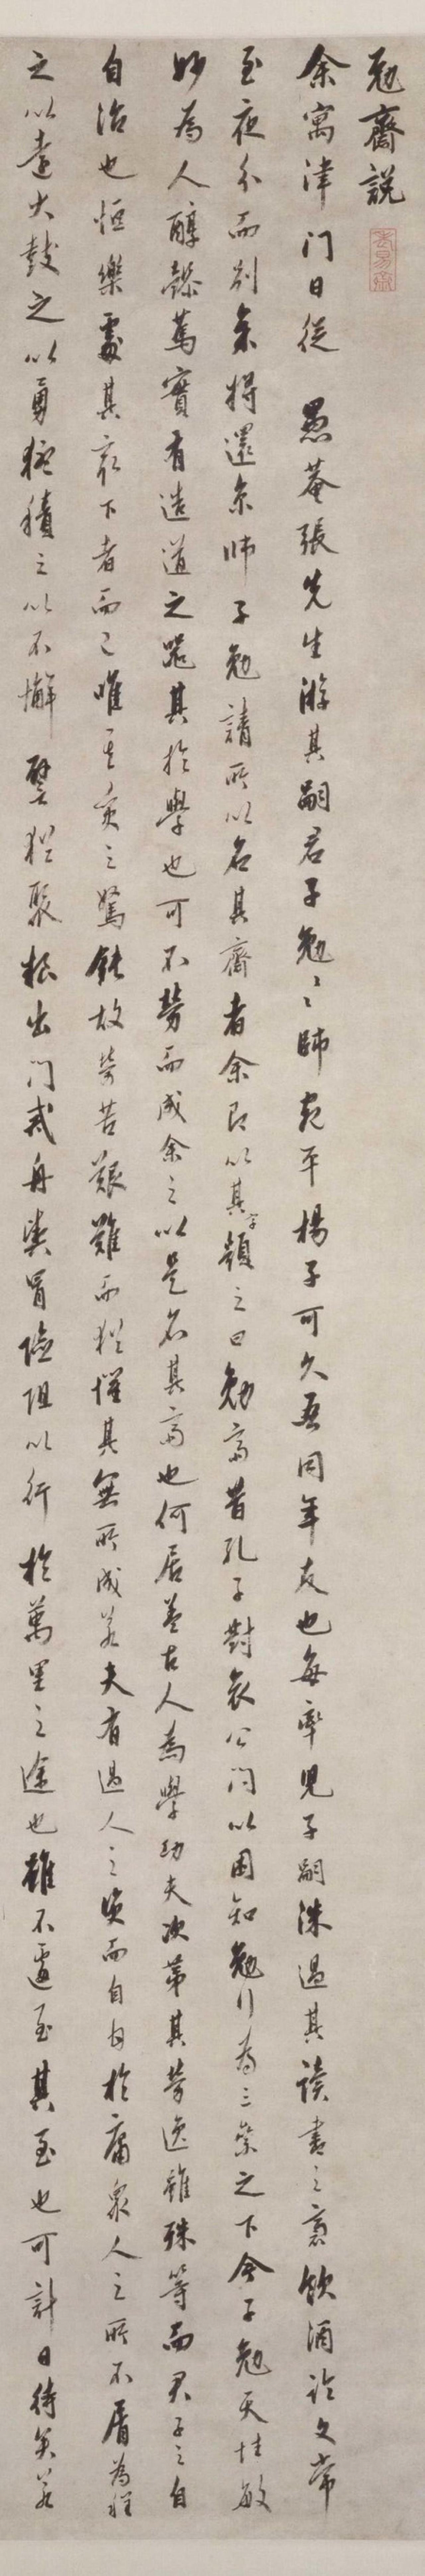 勉齋說
余寓津門日從 愚菴張先生游其嗣君子勉之師宛平楊子可久吾同年友也每率兒子嗣洙過其讀書之窩飲酒論文常
至夜分而別余將還京師子勉請所以名其齋者余即以其字顏之曰勉齋昔孔子對哀公問以困知勉行為三等之下今子勉天性敏
妙為人醇謹篤實有造道之器其於學也可不勞而成余之以是名其齋也何居蓋古人為學功夫次第其勞逸雖殊等而君子之自
自治也恒樂處其最下者而已唯其質之駑鈍故勞苦艱難而猶懼其無所成若夫有過人之資而自甘於庸眾人之所不屑為程
之以遠大鼓之以勇猛積之以不懈 譬猶聚糧出門戒舟輿冒險阻以行於萬里之途也雖不遽至其至也可計日待矣若